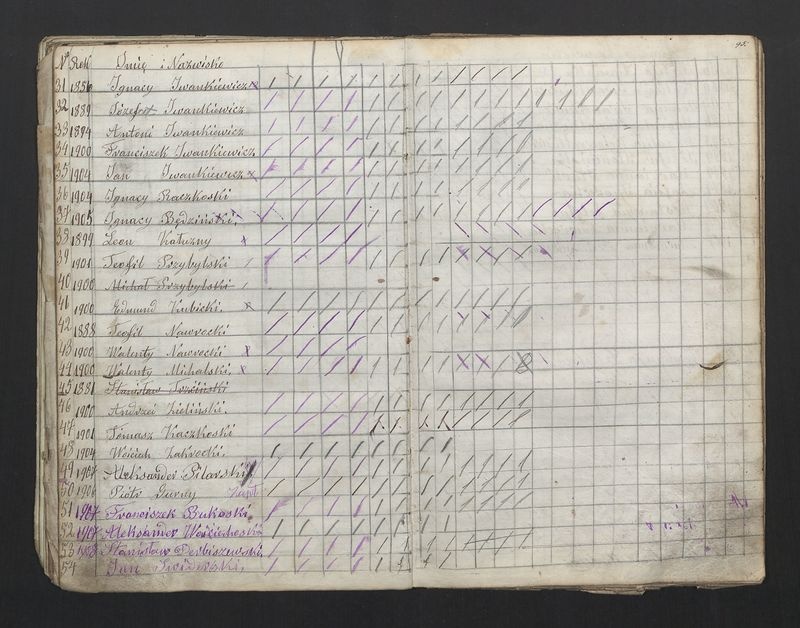 95.
Nº Rok Imię i Nazwisko
31 1856 Ignacy Iwankiewicz x
32 1889 Józefat Iwankiewicz
33 1894 Antoni Iwankiewicz
34 1900 Franciszek Iwankiewicz
35 1904 Jan Iwankiewicz x
36 1904 Ignacy Raczkoski
37 1905 Ignacy Będziński
38 1899 Leon Kałuzny x
39 1901 Teofil Przybylski
40 1900 Michał Przybylski
41 1900 Edmund Kubicki. x
42 1888 Teofil Nawrocki
43 1900 Walenty Nawrocki x
44 1900 Walenty Michalski x
45 1881 Stanisław
46 1900 Andrzei Zieliński.
47 1901 Tomasz Kaczkoski
48 1904 Wojciech Zakrocki.
49 1907 Aleksander Pilarski
50 1906 Piotr
51 1907 Franciszek Bukoski.
52 1907 Aleksander Wojciechoski
53 1908 Stanisław Derbiszewski
54 Jan Swiderski.